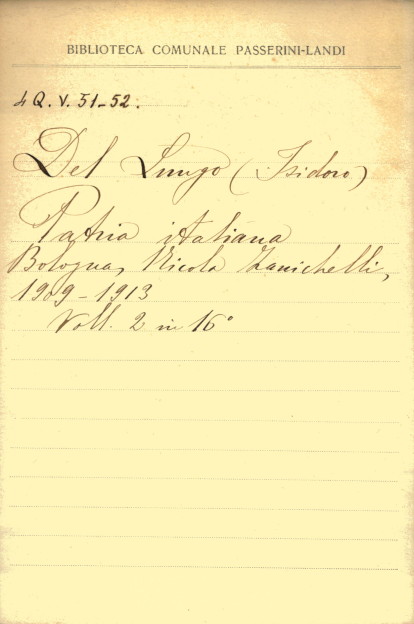 BIBLIOTECA COMUNALE PASSERINI-LANDI
4 Q. V. 51-52.
Del Lungo (Isidoro)
Patria italiana
Bologna, Nicola Zanichelli,
1909-1913
Voll. 2 in 16°